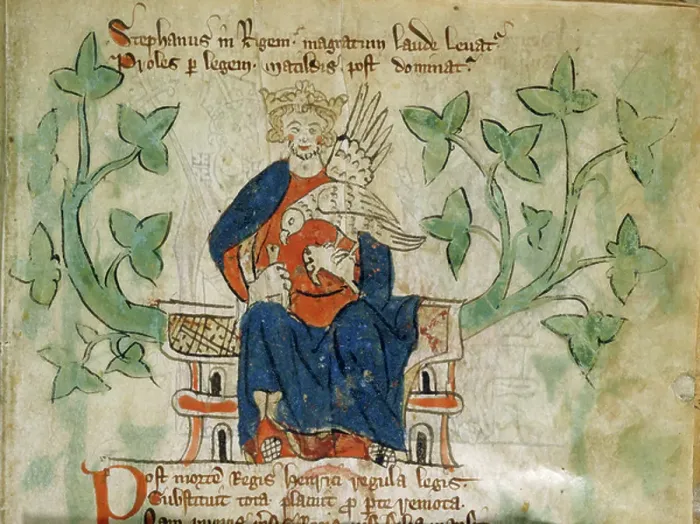 Stephanus in Regem. magnatum laude leuatr
Proles p legem. matildis post dominatr
Post mortē Regis henrici regula legis.
Substituit tota placuit p pte remota.